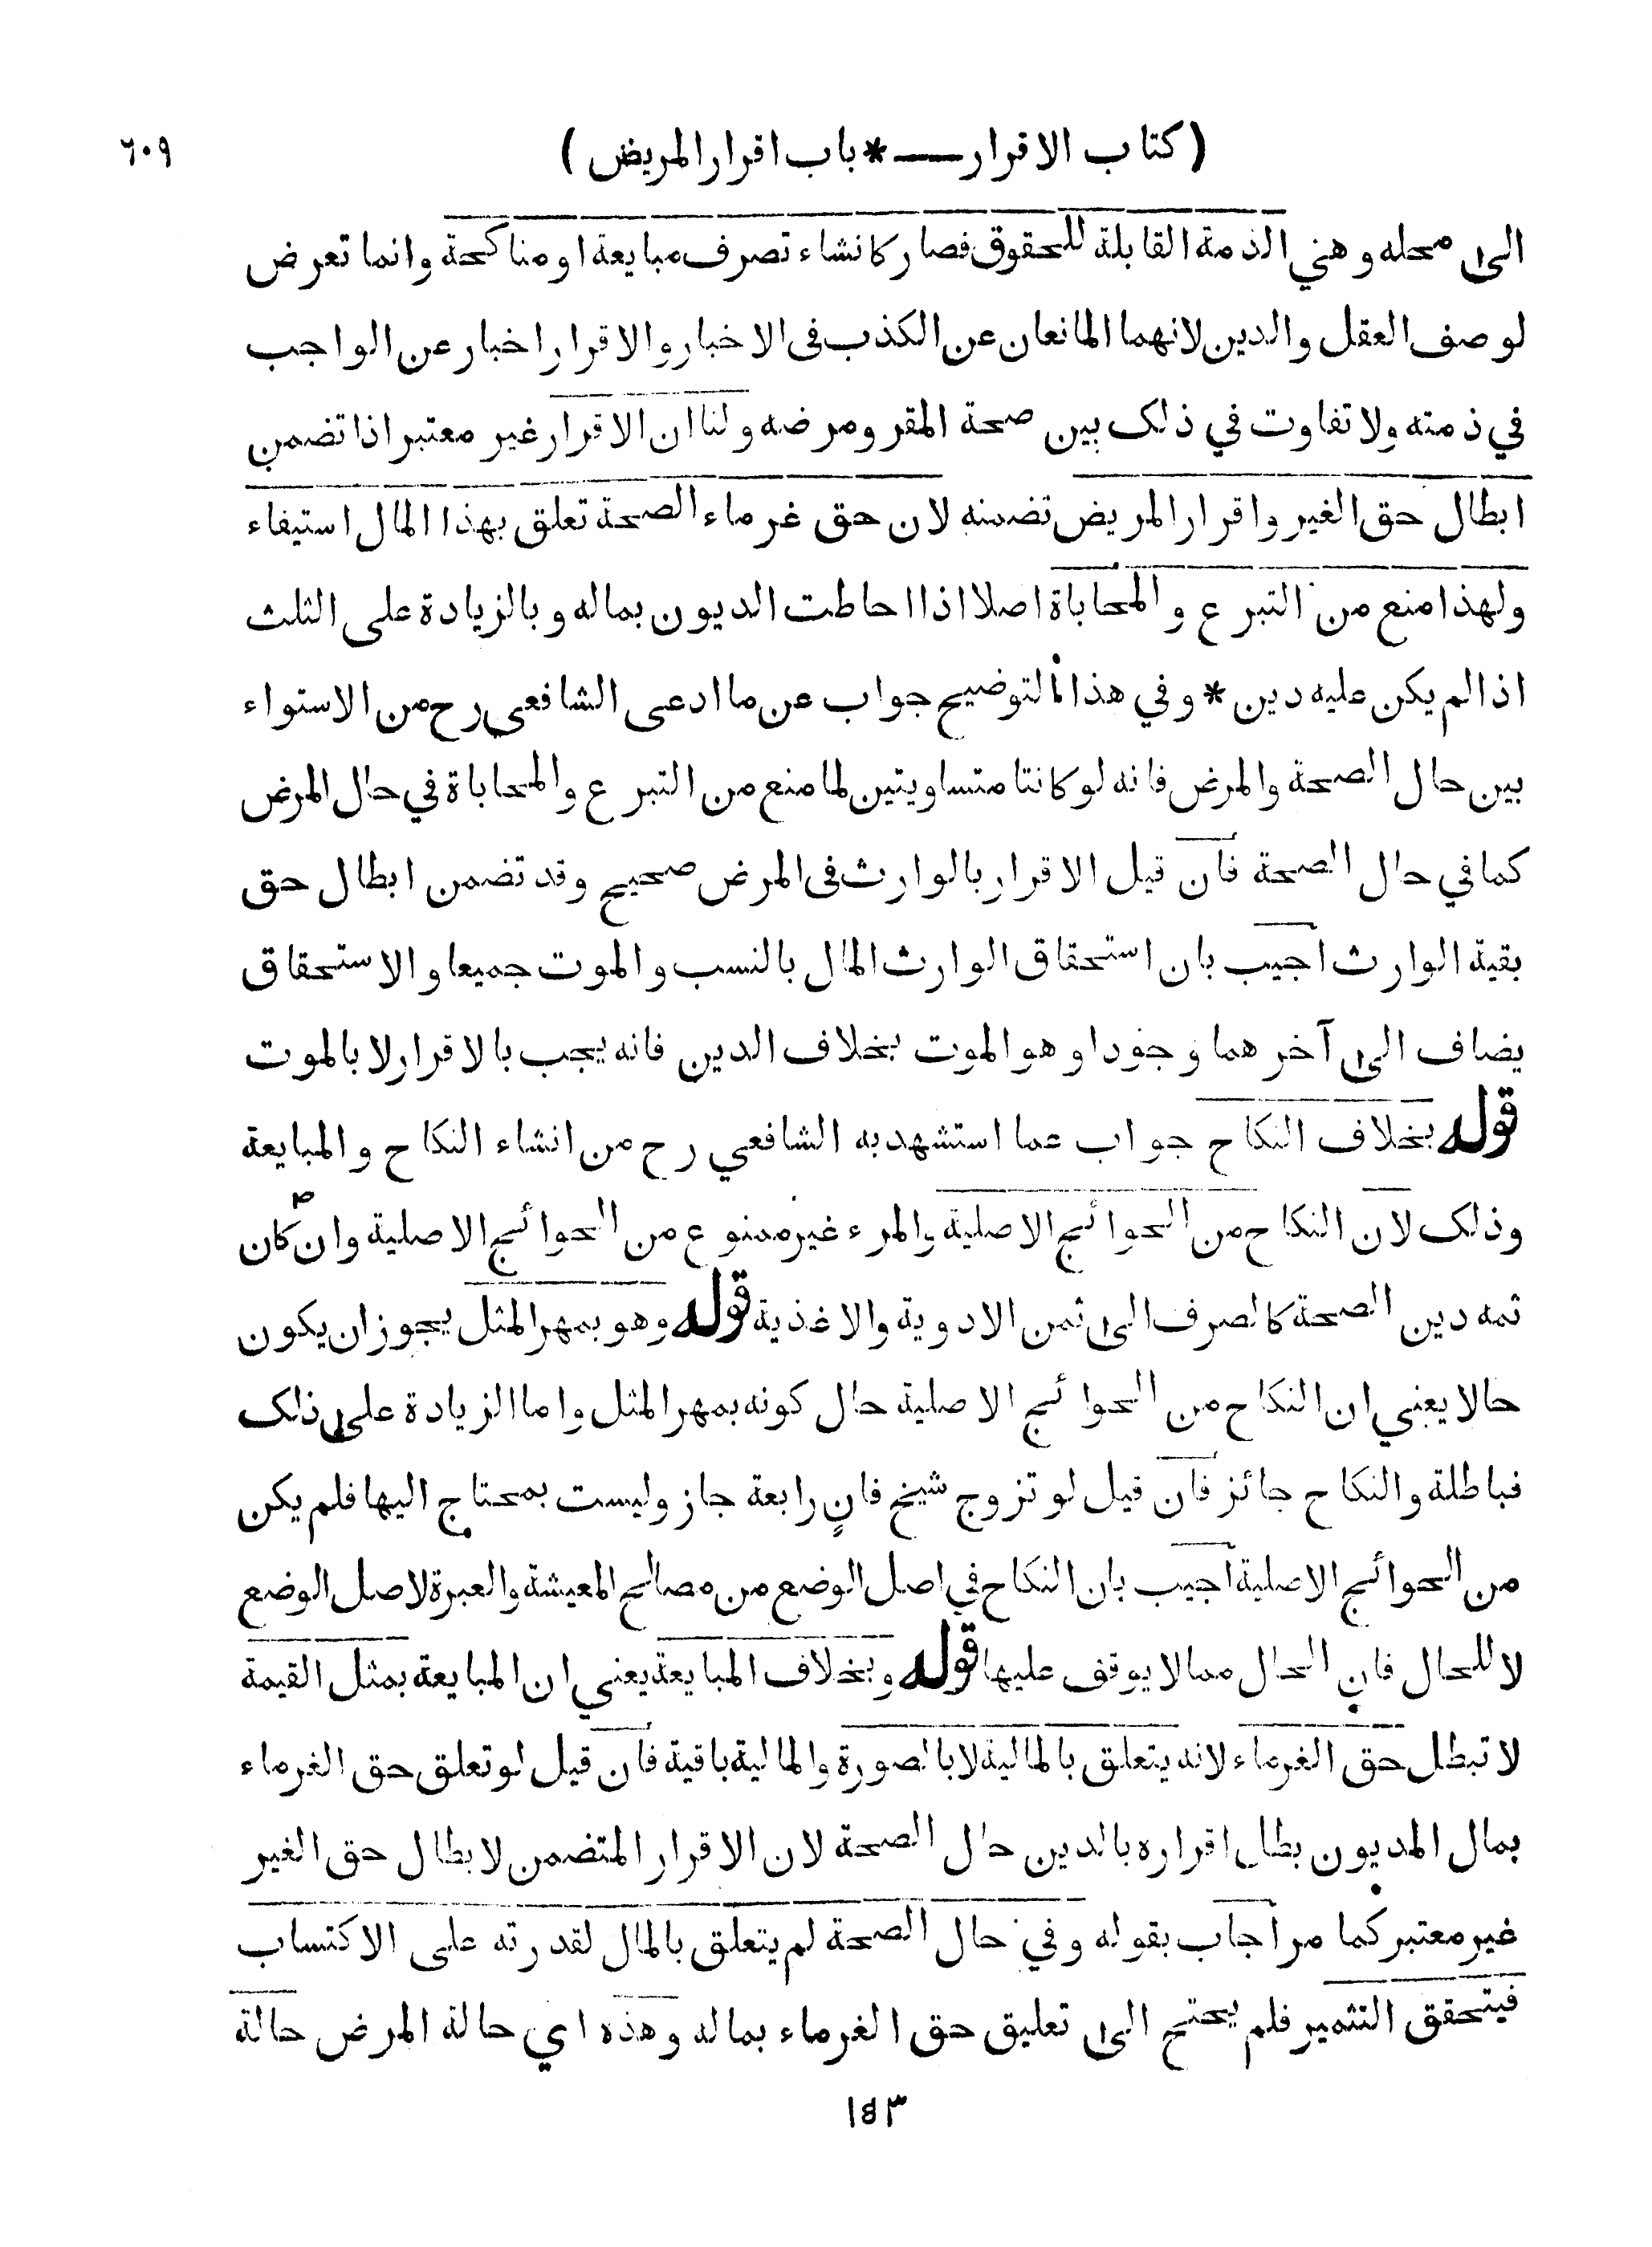 (كتاب الاقرار — * باب اقرار المريض)
٦٠٩
الى محله وهي الذمة القابلة للحقوق فصار كانشاء تصرف مبايعة او مناكحة وانما تعرض
لوصف العقل والدين لانهما المانعان عن الكذب فى الاخبار والاقرار اخبار عن الواجب
في ذمته ولا تفاوت في ذلك بين صحة المقر ومرضه ولنا ان الاقرار غير معتبر اذا تضمن
ابطال حق الغير واقرار المريض تضمنه لان حق غرماء الصحة تعلق بهذا المال استيفاء
ولهذا منع من التبرع والمحاباة اصلا اذا احاطت الديون بماله وبالزيادة على الثلث
اذا لم يكن عليه دين * وفي هذا التوضيح جواب عن ما ادعى الشافعى رح من الاستواء
بين حال الصحة والمرض فانه لو كانتا متساويتين لما منع من التبرع والمحاباة في حال المرض
كما في حال الصحة فان قيل الاقرار بالوارث فى المرض صحيح وقد تضمن ابطال حق
بقية الوارث اجيب بان استحقاق الوارث المال بالنسب والموت جميعا والاستحقاق
يضاف الى آخرهما وجودا وهو الموت بخلاف الدين فانه يجب بالاقرار لا بالموت
قوله بخلاف النكاح جواب عما استشهد به الشافعي رح من انشاء النكاح والمبايعة
وذلك لان النكاح من الحوائج الاصلية والمرء غير ممنوع من الحوائج الاصلية وان كان
ثمه دين الصحة كالصرف الى ثمن الادوية والاغذية قوله وهو بمهر المثل يجوز ان يكون
حالا يعني ان النكاح من الحوائج الاصلية حال كونه بمهر المثل واما الزيادة على ذلك
فباطلة والنكاح جائز فان قيل لو تزوج شيخ فانٍ رابعة جاز وليست بمحتاج اليها فلم يكن
من الحوائج الاصلية اجيب بان النكاح في اصل الوضع من مصالح المعيشة والعبرة لاصل الوضع
لا للحال فان الحال مما لا يوقف عليها قوله وبخلاف المبايعة يعني ان المبايعة بمثل القيمة
لا تبطل حق الغرماء لانه يتعلق بالمالية لا بالصورة والمالية باقية فان قيل لو تعلق حق الغرماء
بمال المديون بطل اقراره بالدين حال الصحة لان الاقرار المتضمن لابطال حق الغير
غير معتبر كما مر اجاب بقوله وفي حال الصحة لم يتعلق بالمال لقدرته على الاكتساب
فيتحقق التثمير فلم يحتج الى تعليق حق الغرماء بماله وهذه اي حالة المرض حالة
١٤٣